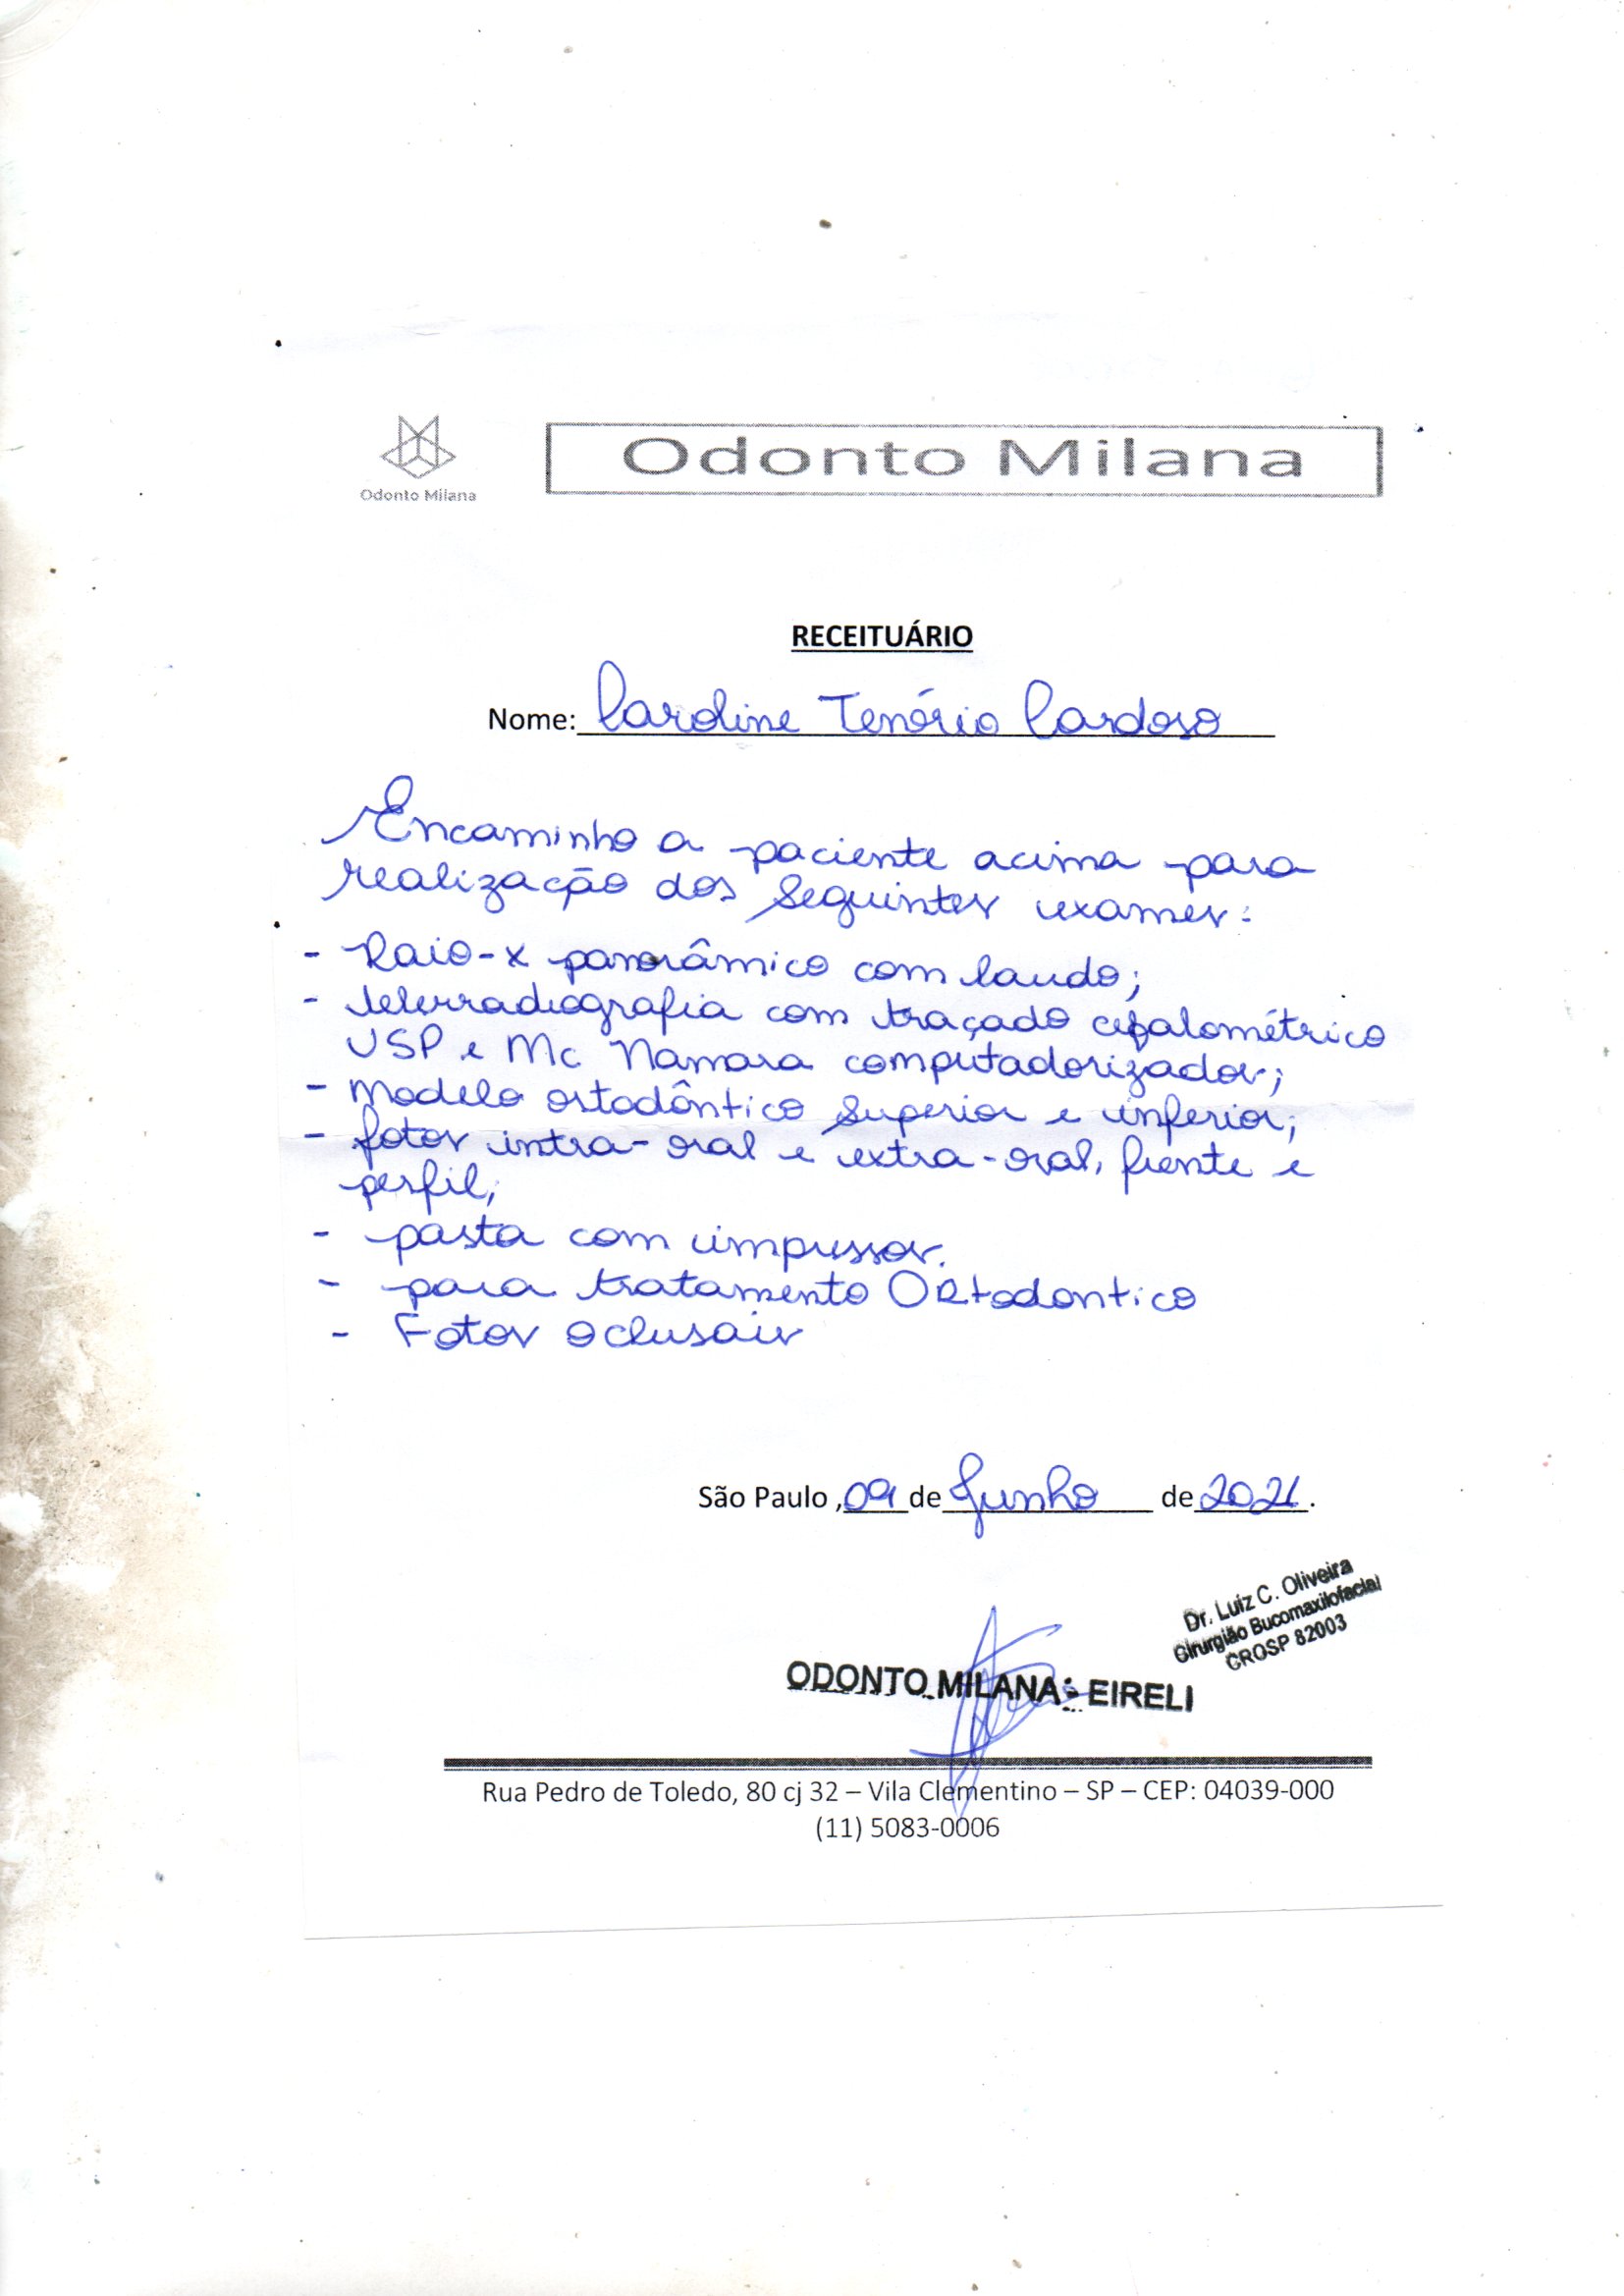 Odonto Milana
Odonto Milana
RECEITUÁRIO
Nome: Caroline Tenório Cardoso
Encaminho a paciente acima para
realização dos seguintes exames:
- Raio-x panorâmico com laudo;
- telerradiografia com traçado cefalométrico
USP e Mc Namara computadorizados;
- Modelo ortodôntico superior e inferior;
- fotos intra-oral e extra-oral, frente e
perfil;
- pasta com impressos.
- para tratamento ORtodontico
- Fotos oclusais
São Paulo, 09 de Junho de 2021.
Dr. Luiz C. Oliveira
Cirurgião Bucomaxilofacial
CROSP 82003
ODONTO MILANA - EIRELI
Rua Pedro de Toledo, 80 cj 32 – Vila Clementino – SP – CEP: 04039-000
(11) 5083-0006